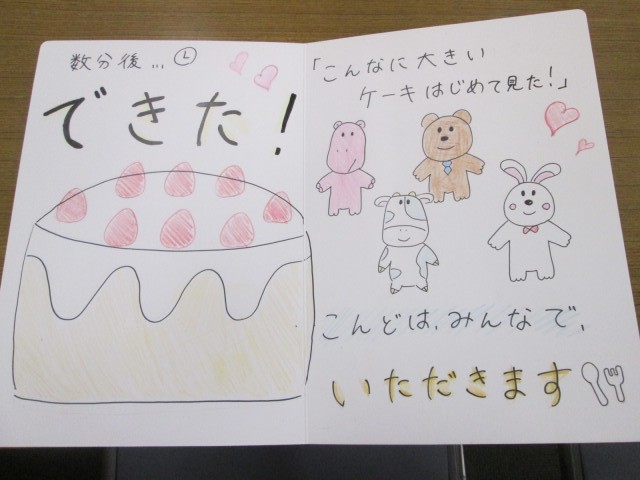 数分後… Ⓛ
できた!
「こんなに大きい
ケーキはじめて見た!」
こんどは、みんなで、
いただきます